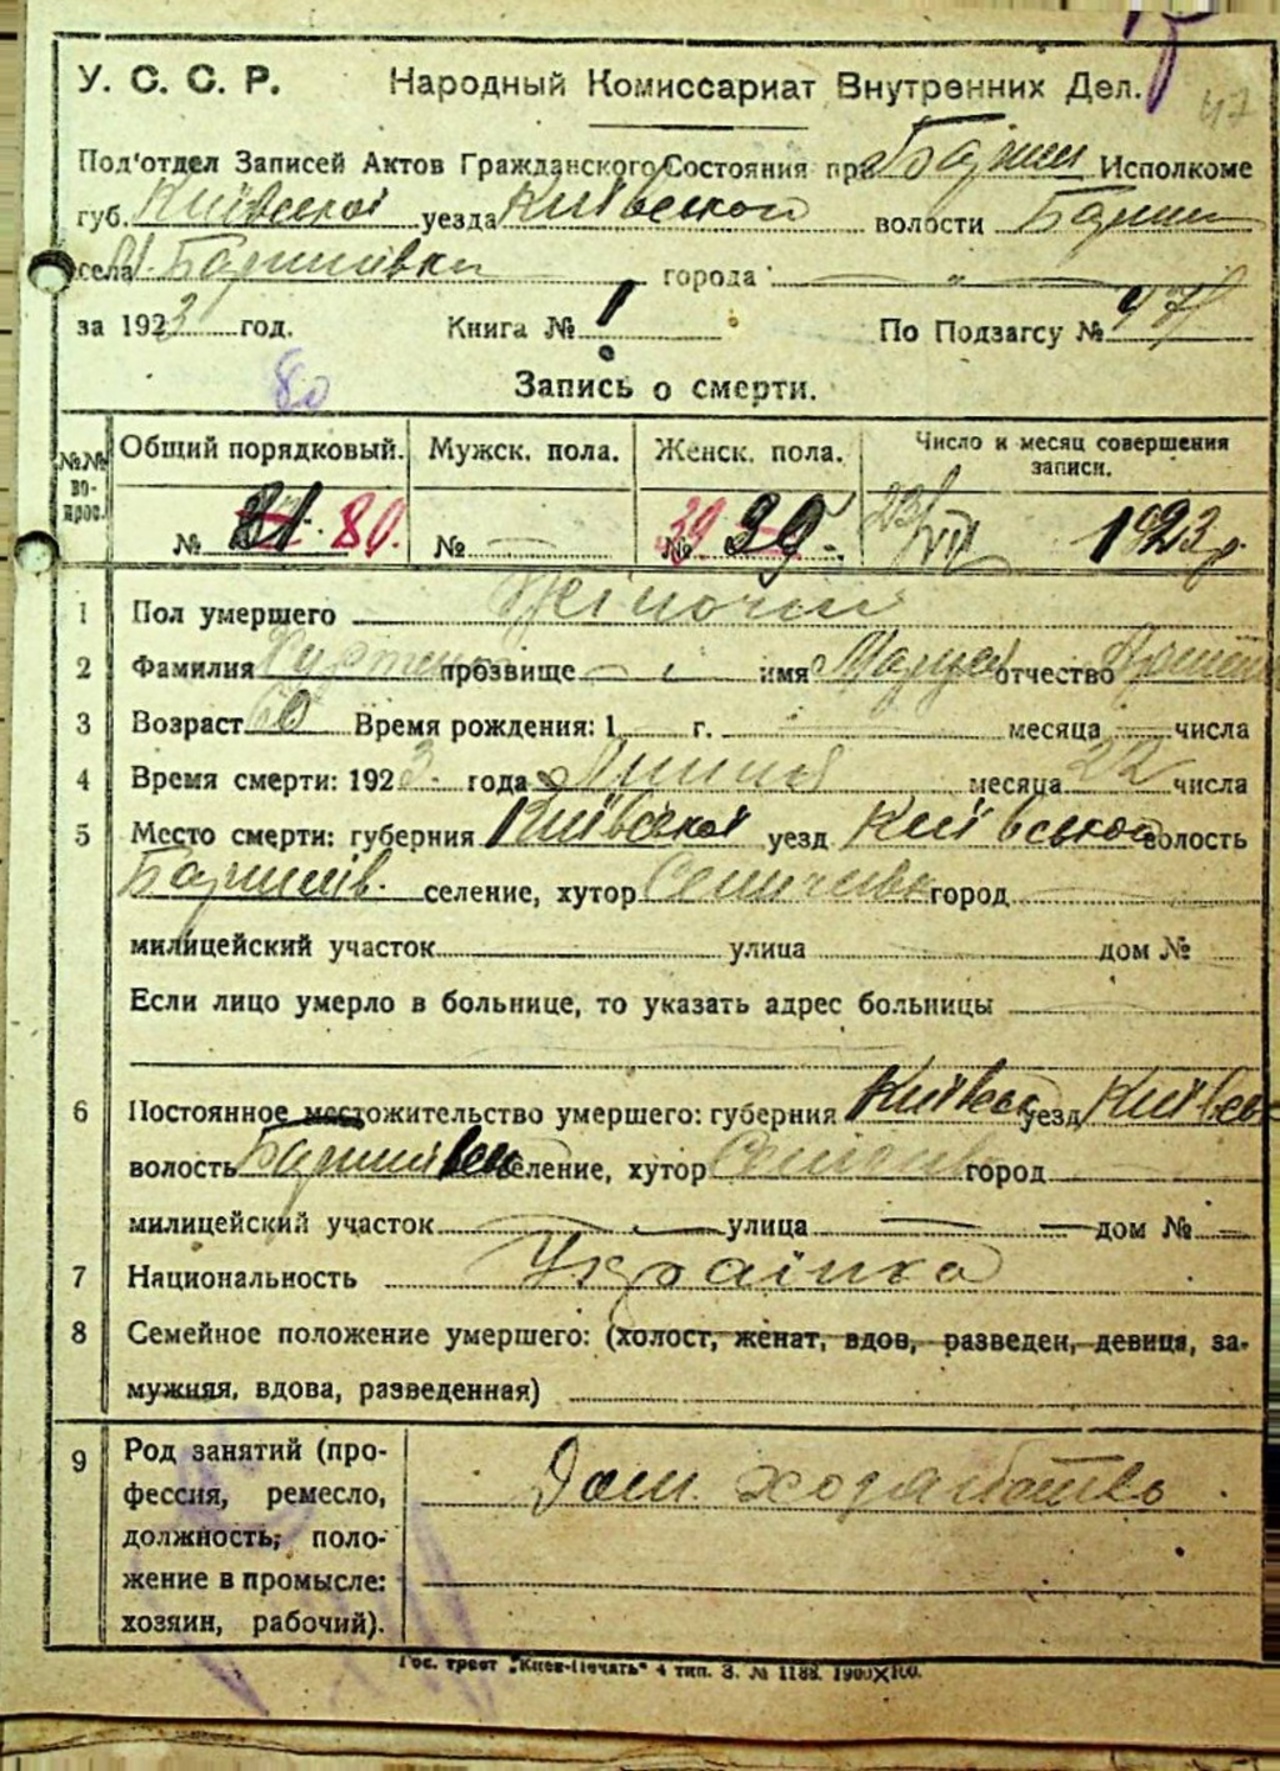 47
У. С. С. Р. Народный Комиссариат Внутренних Дел.
Под'отдел Записей Актов Гражданского Состояния при Исполкоме
губ. Київської уезда Київської волости
села м. Баришівки города "
за 1923 год. Книга № 1 По Подзагсу № 47
80
Запись о смерти.
№№ вопрос. Общий порядковый. Мужск. пола. Женск. пола. Число и месяц совершения записи.
№ 81. 80. № № 39 39 23/VII 1923 р.
1 Пол умершего Жіночий
2 Фамилия прозвище имя Маруся отчество
3 Возраст 60 Время рождения: 1 г. месяца числа
4 Время смерти: 1923 года месяца 22 числа
5 Место смерти: губерния Київської уезд Київської волость
Баришів. селение, хутор город
милицейский участок улица дом №
Если лицо умерло в больнице, то указать адрес больницы
6 Постоянное местожительство умершего: губерния Київськ уезд Київсь
волость селение, хутор город
милицейский участок улица дом №
7 Национальность Українка
8 Семейное положение умершего: (холост, женат, вдов, разведен, девица, за-
мужняя, вдова, разведенная)
9 Род занятий (про-
фессия, ремесло,
должность, поло-
жение в промысле:
хозяин, рабочий).
Дом. хозяйство
Гос. трест „Киев-Печать" 4 тип. З. № 1188. 1900X100.